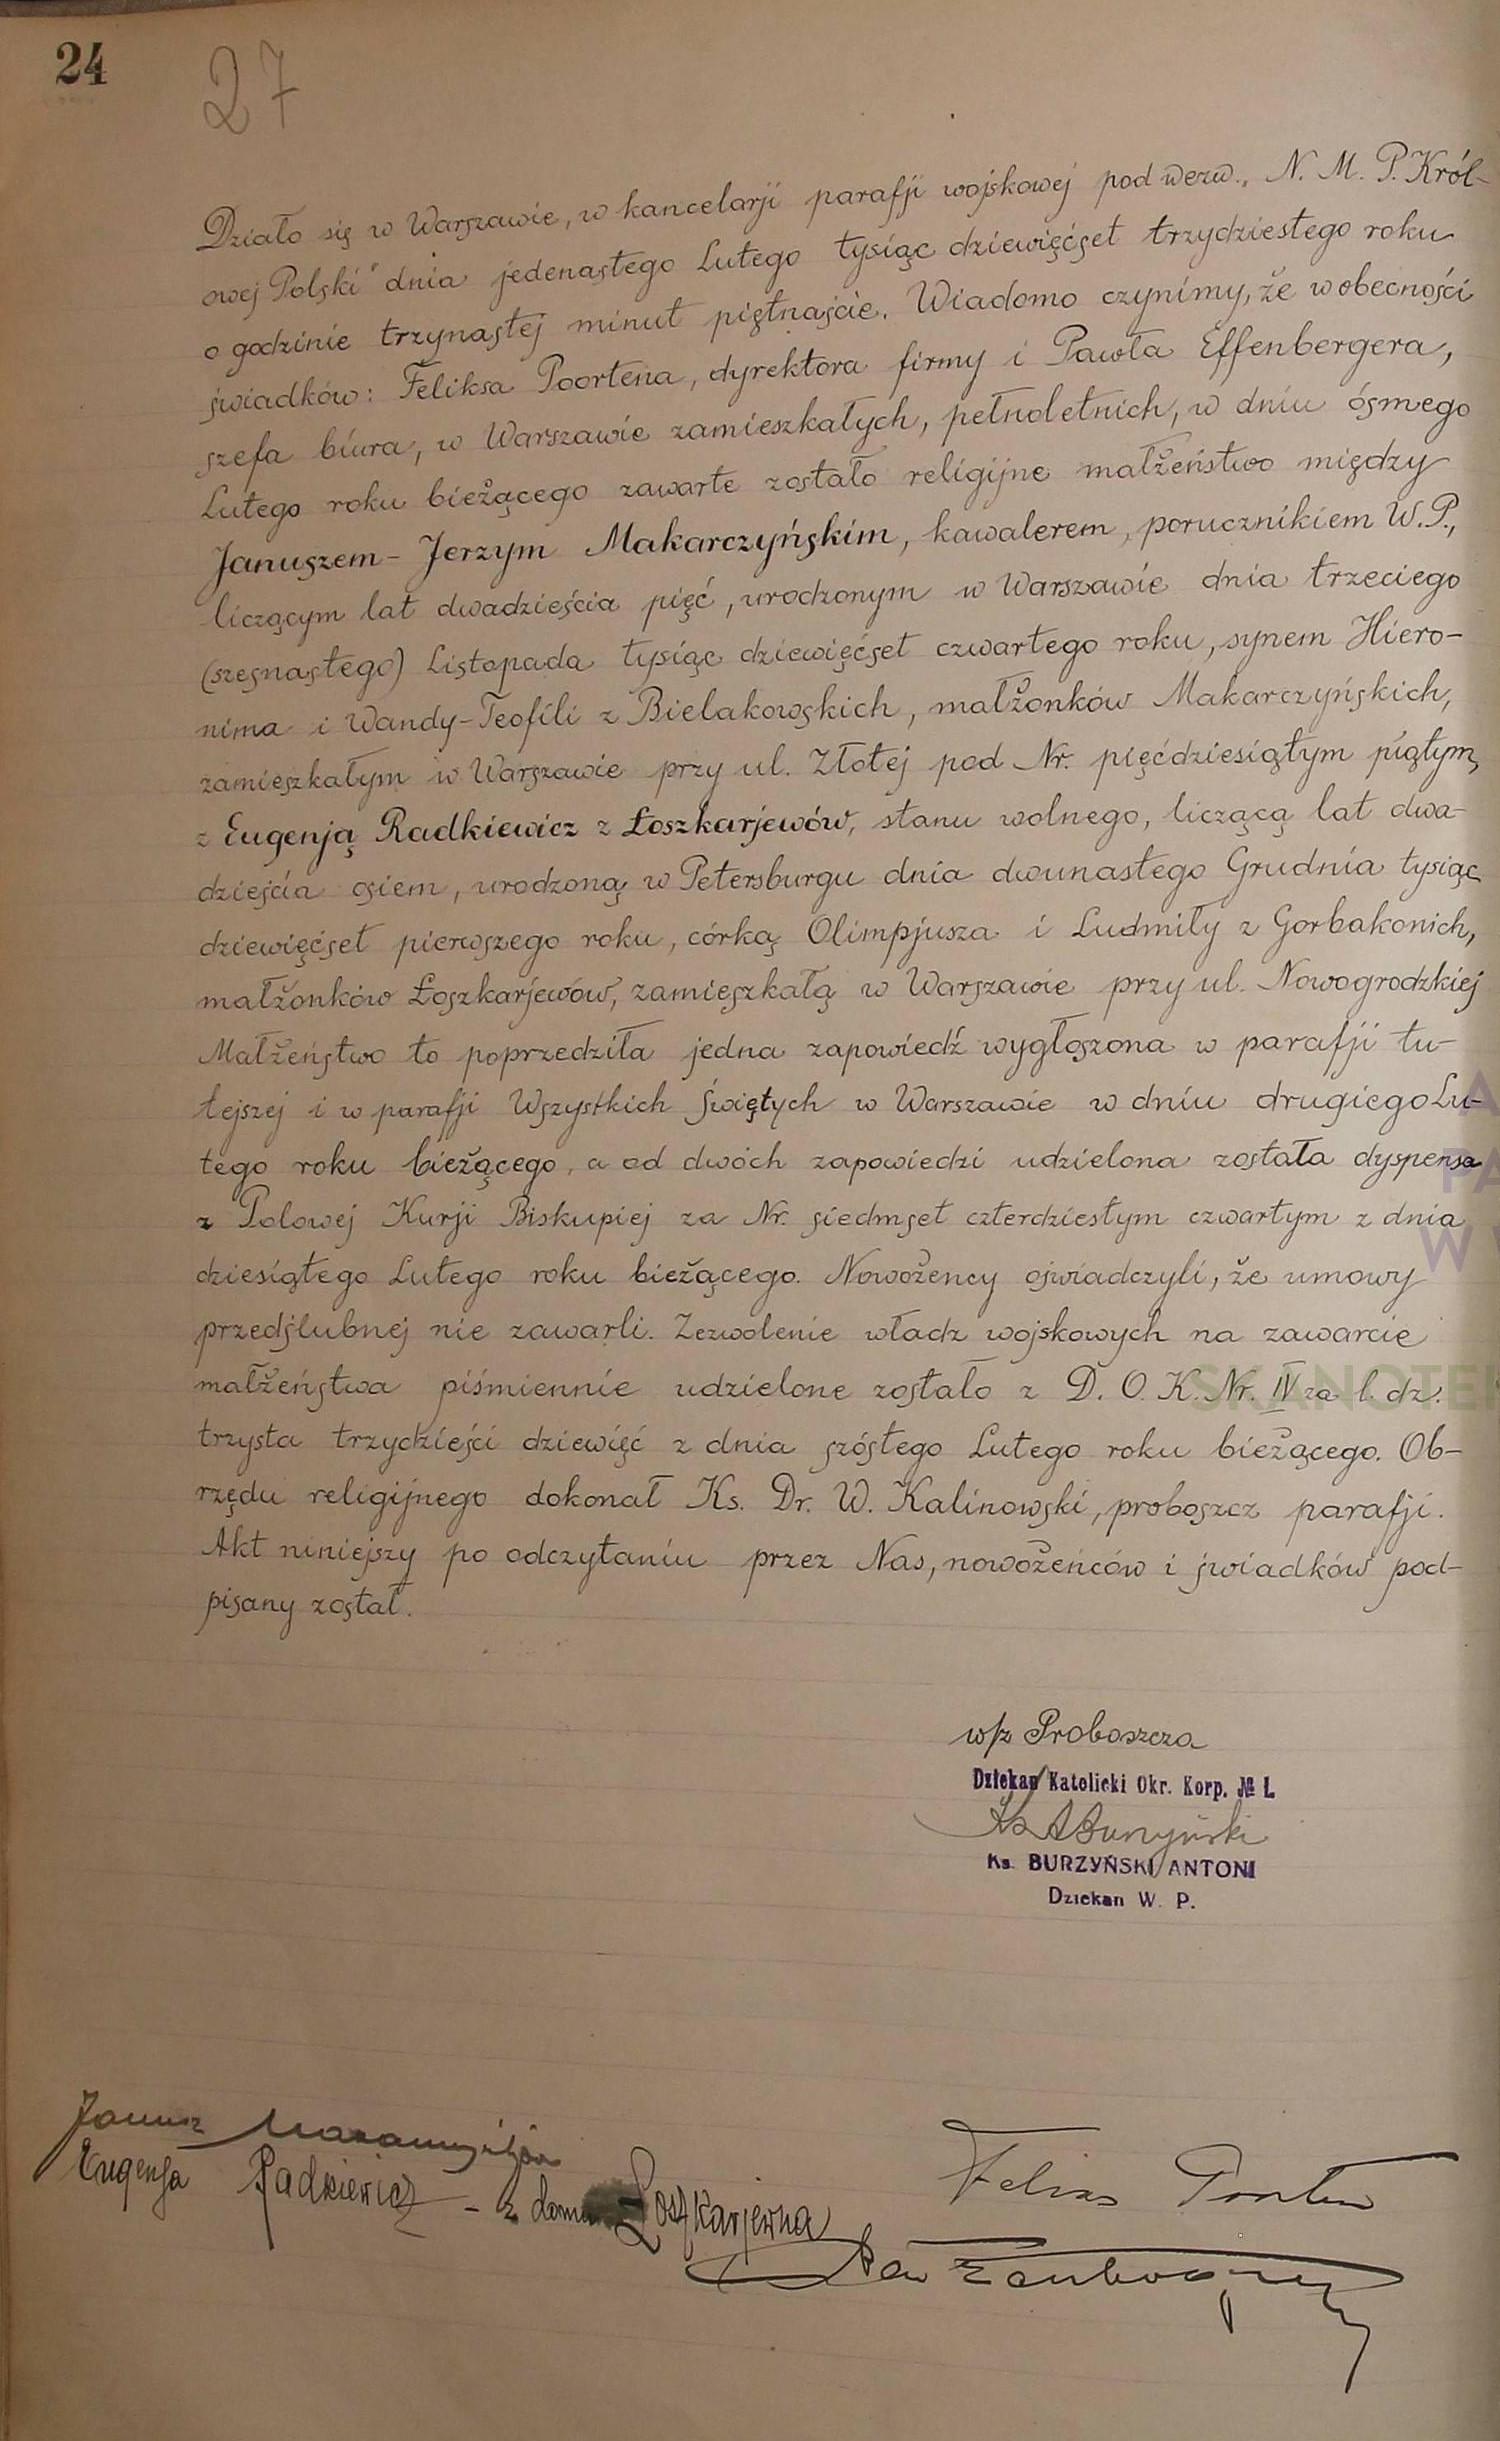 24
27
Działo się w Warszawie, w kancelarji parafji wojskowej pod wezw. „N. M. P. Król-
owej Polski" dnia jedenastego Lutego tysiąc dziewięćset trzydziestego roku
o godzinie trzynastej minut piętnaście. Wiadomo czynimy, że w obecności
świadków: Feliksa Poortena, dyrektora firmy i Pawła Effenbergera,
szefa biura, w Warszawie zamieszkałych, pełnoletnich, w dniu ósmego
Lutego roku bieżącego zawarte zostało religijne małżeństwo między
Januszem-Jerzym Makarczyńskim, kawalerem, porucznikiem W.P.,
liczącym lat dwadzieścia pięć, urodzonym w Warszawie dnia trzeciego
(szesnastego) Listopada tysiąc dziewięćset czwartego roku, synem Hiero-
nima i Wandy-Teofili z Bielakowskich, małżonków Makarczyńskich,
zamieszkałym w Warszawie przy ul. Złotej pod Nr. pięćdziesiątym piątym,
z Eugenją Radkiewicz z Łoszkarjewów, stanu wolnego, liczącą lat dwa-
dzieścia osiem, urodzoną w Petersburgu dnia dwunastego Grudnia tysiąc
dziewięćset pierwszego roku, córką Olimpjusza i Ludmiły z Gorbakonich,
małżonków Łoszkarjewów, zamieszkałą w Warszawie przy ul. Nowogrodzkiej
Małżeństwo to poprzedziła jedna zapowiedź wygłoszona w parafji tu-
tejszej i w parafji Wszystkich Świętych w Warszawie w dniu drugiego Lu-
tego roku bieżącego, a od dwóch zapowiedzi udzielona została dyspensa
z Polowej Kurji Biskupiej za Nr. siedmset czterdziestym czwartym z dnia
dziesiątego Lutego roku bieżącego. Nowożency oświadczyli, że umowy
przedślubnej nie zawarli. Zezwolenie władz wojskowych na zawarcie
małżeństwa piśmiennie udzielone zostało z D. O. K. Nr. IV za l. dz.
trzysta trzydzieści dziewięć z dnia szóstego Lutego roku bieżącego. Ob-
rzędu religijnego dokonał Ks. Dr. W. Kalinowski, proboszcz parafji.
Akt niniejszy po odczytaniu przez Nas, nowożeńców i świadków pod-
pisany został.
w/z Proboszcza
Dziekan Katolicki Okr. Korp. № I.
Ks A Burzyński
Ks. BURZYŃSKI ANTONI
Dziekan W. P.
Janusz
Eugenja Radkiewicz - z domu Łoszkarjewna
Feliks Poorten
SKANOTE
PA
W W